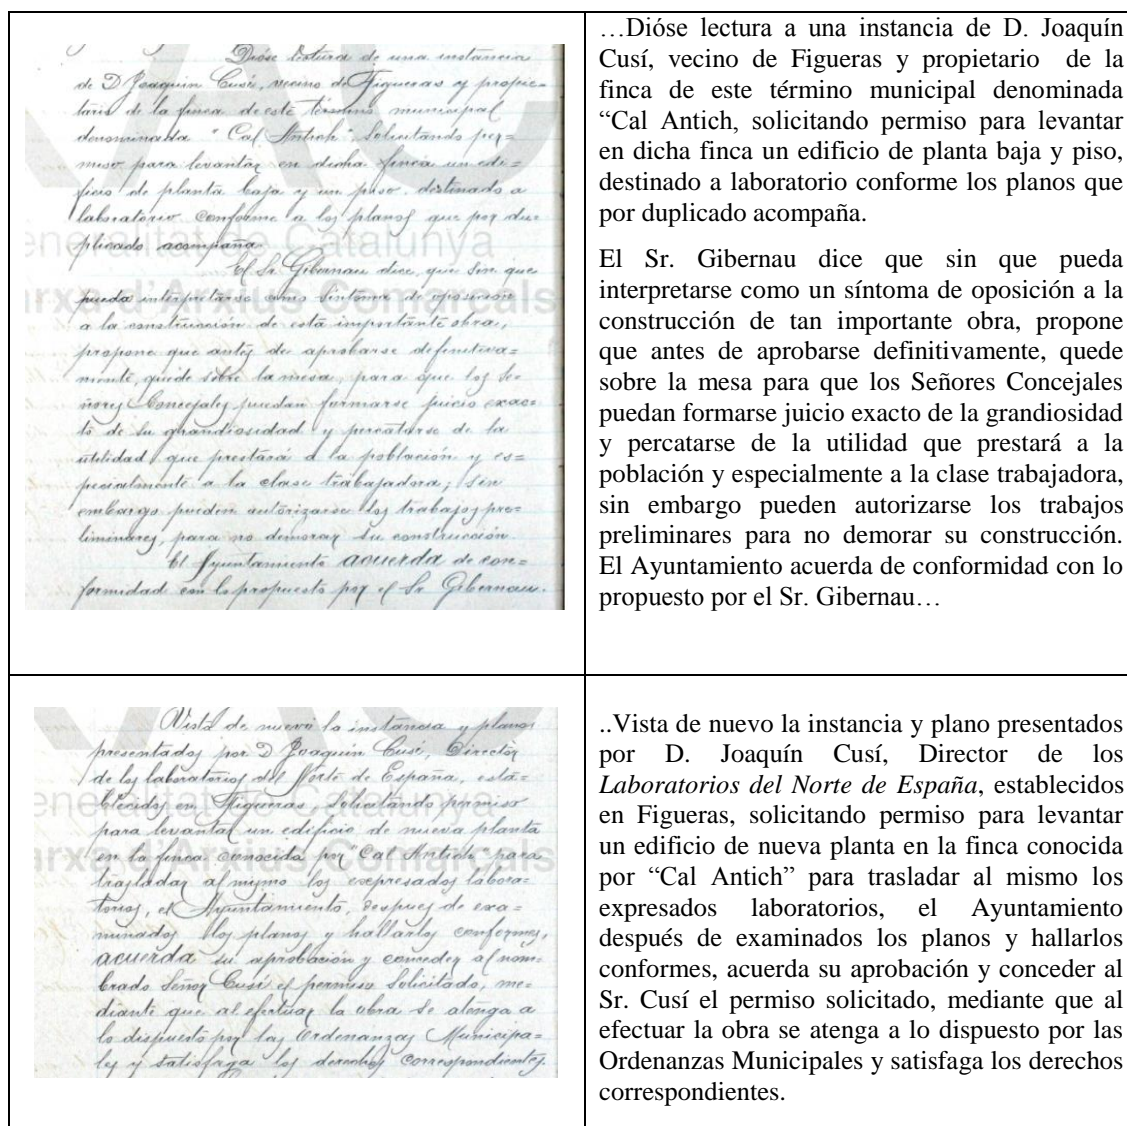 Dióse lectura de una instancia
de D. Joaquin Cusí, vecino de Figueras y propie=
tario de la finca de este término municipal
denominada "Cal Antich", solicitando per=
miso para levantar en dicha finca un edi=
ficio de planta baja y un piso, destinado a
laboratorio conforme a los planos que por du=
plicado acompaña.
El Sr. Gibernau dice, que sin que
pueda interpretarse como síntoma de oposición
a la construcción de esta importante obra,
propone que antes de aprobarse definitiva=
mente, quede sobre la mesa, para que los Se=
ñores Concejales puedan formarse juicio exac=
to de su grandiosidad y percatarse de la
utilidad que prestará a la población y es=
pecialmente a la clase trabajadora; sin
embargo pueden autorizarse los trabajos pre=
liminares, para no demorar su construcción.
El Ayuntamiento acuerda de con=
formidad con lo propuesto por el Sr. Gibernau.
…Dióse lectura a una instancia de D. Joaquín
Cusí, vecino de Figueras y propietario de la
finca de este término municipal denominada
“Cal Antich, solicitando permiso para levantar
en dicha finca un edificio de planta baja y piso,
destinado a laboratorio conforme los planos que
por duplicado acompaña.
El Sr. Gibernau dice que sin que pueda
interpretarse como un síntoma de oposición a la
construcción de tan importante obra, propone
que antes de aprobarse definitivamente, quede
sobre la mesa para que los Señores Concejales
puedan formarse juicio exacto de la grandiosidad
y percatarse de la utilidad que prestará a la
población y especialmente a la clase trabajadora,
sin embargo pueden autorizarse los trabajos
preliminares para no demorar su construcción.
El Ayuntamiento acuerda de conformidad con lo
propuesto por el Sr. Gibernau…
Vista de nuevo la instancia y planos
presentados por D. Joaquin Cusí, Director
de los laboratorios del Norte de España, esta=
blecidos en Figueras, solicitando permiso
para levantar un edificio de nueva planta
en la finca conocida por "Cal Antich" para
trasladar al mismo los expresados labora=
torios, el Ayuntamiento, despues de exa=
minados los planos y hallarlos conformes,
acuerda su aprobación y conceder al nom=
brado Señor Cusí el permiso solicitado, me=
diante que al efectuar la obra se atenga a
lo dispuesto por las Ordenanzas Municipa=
les y satisfaga los derechos correspondientes.
..Vista de nuevo la instancia y plano presentados
por D. Joaquín Cusí, Director de los
Laboratorios del Norte de España, establecidos
en Figueras, solicitando permiso para levantar
un edificio de nueva planta en la finca conocida
por “Cal Antich” para trasladar al mismo los
expresados laboratorios, el Ayuntamiento
después de examinados los planos y hallarlos
conformes, acuerda su aprobación y conceder al
Sr. Cusí el permiso solicitado, mediante que al
efectuar la obra se atenga a lo dispuesto por las
Ordenanzas Municipales y satisfaga los derechos
correspondientes.
eneralitat de Catalunya
arxa d'Arxius Comarcals
eneralitat de Catalunya
arxa d'Arxius Comarcals